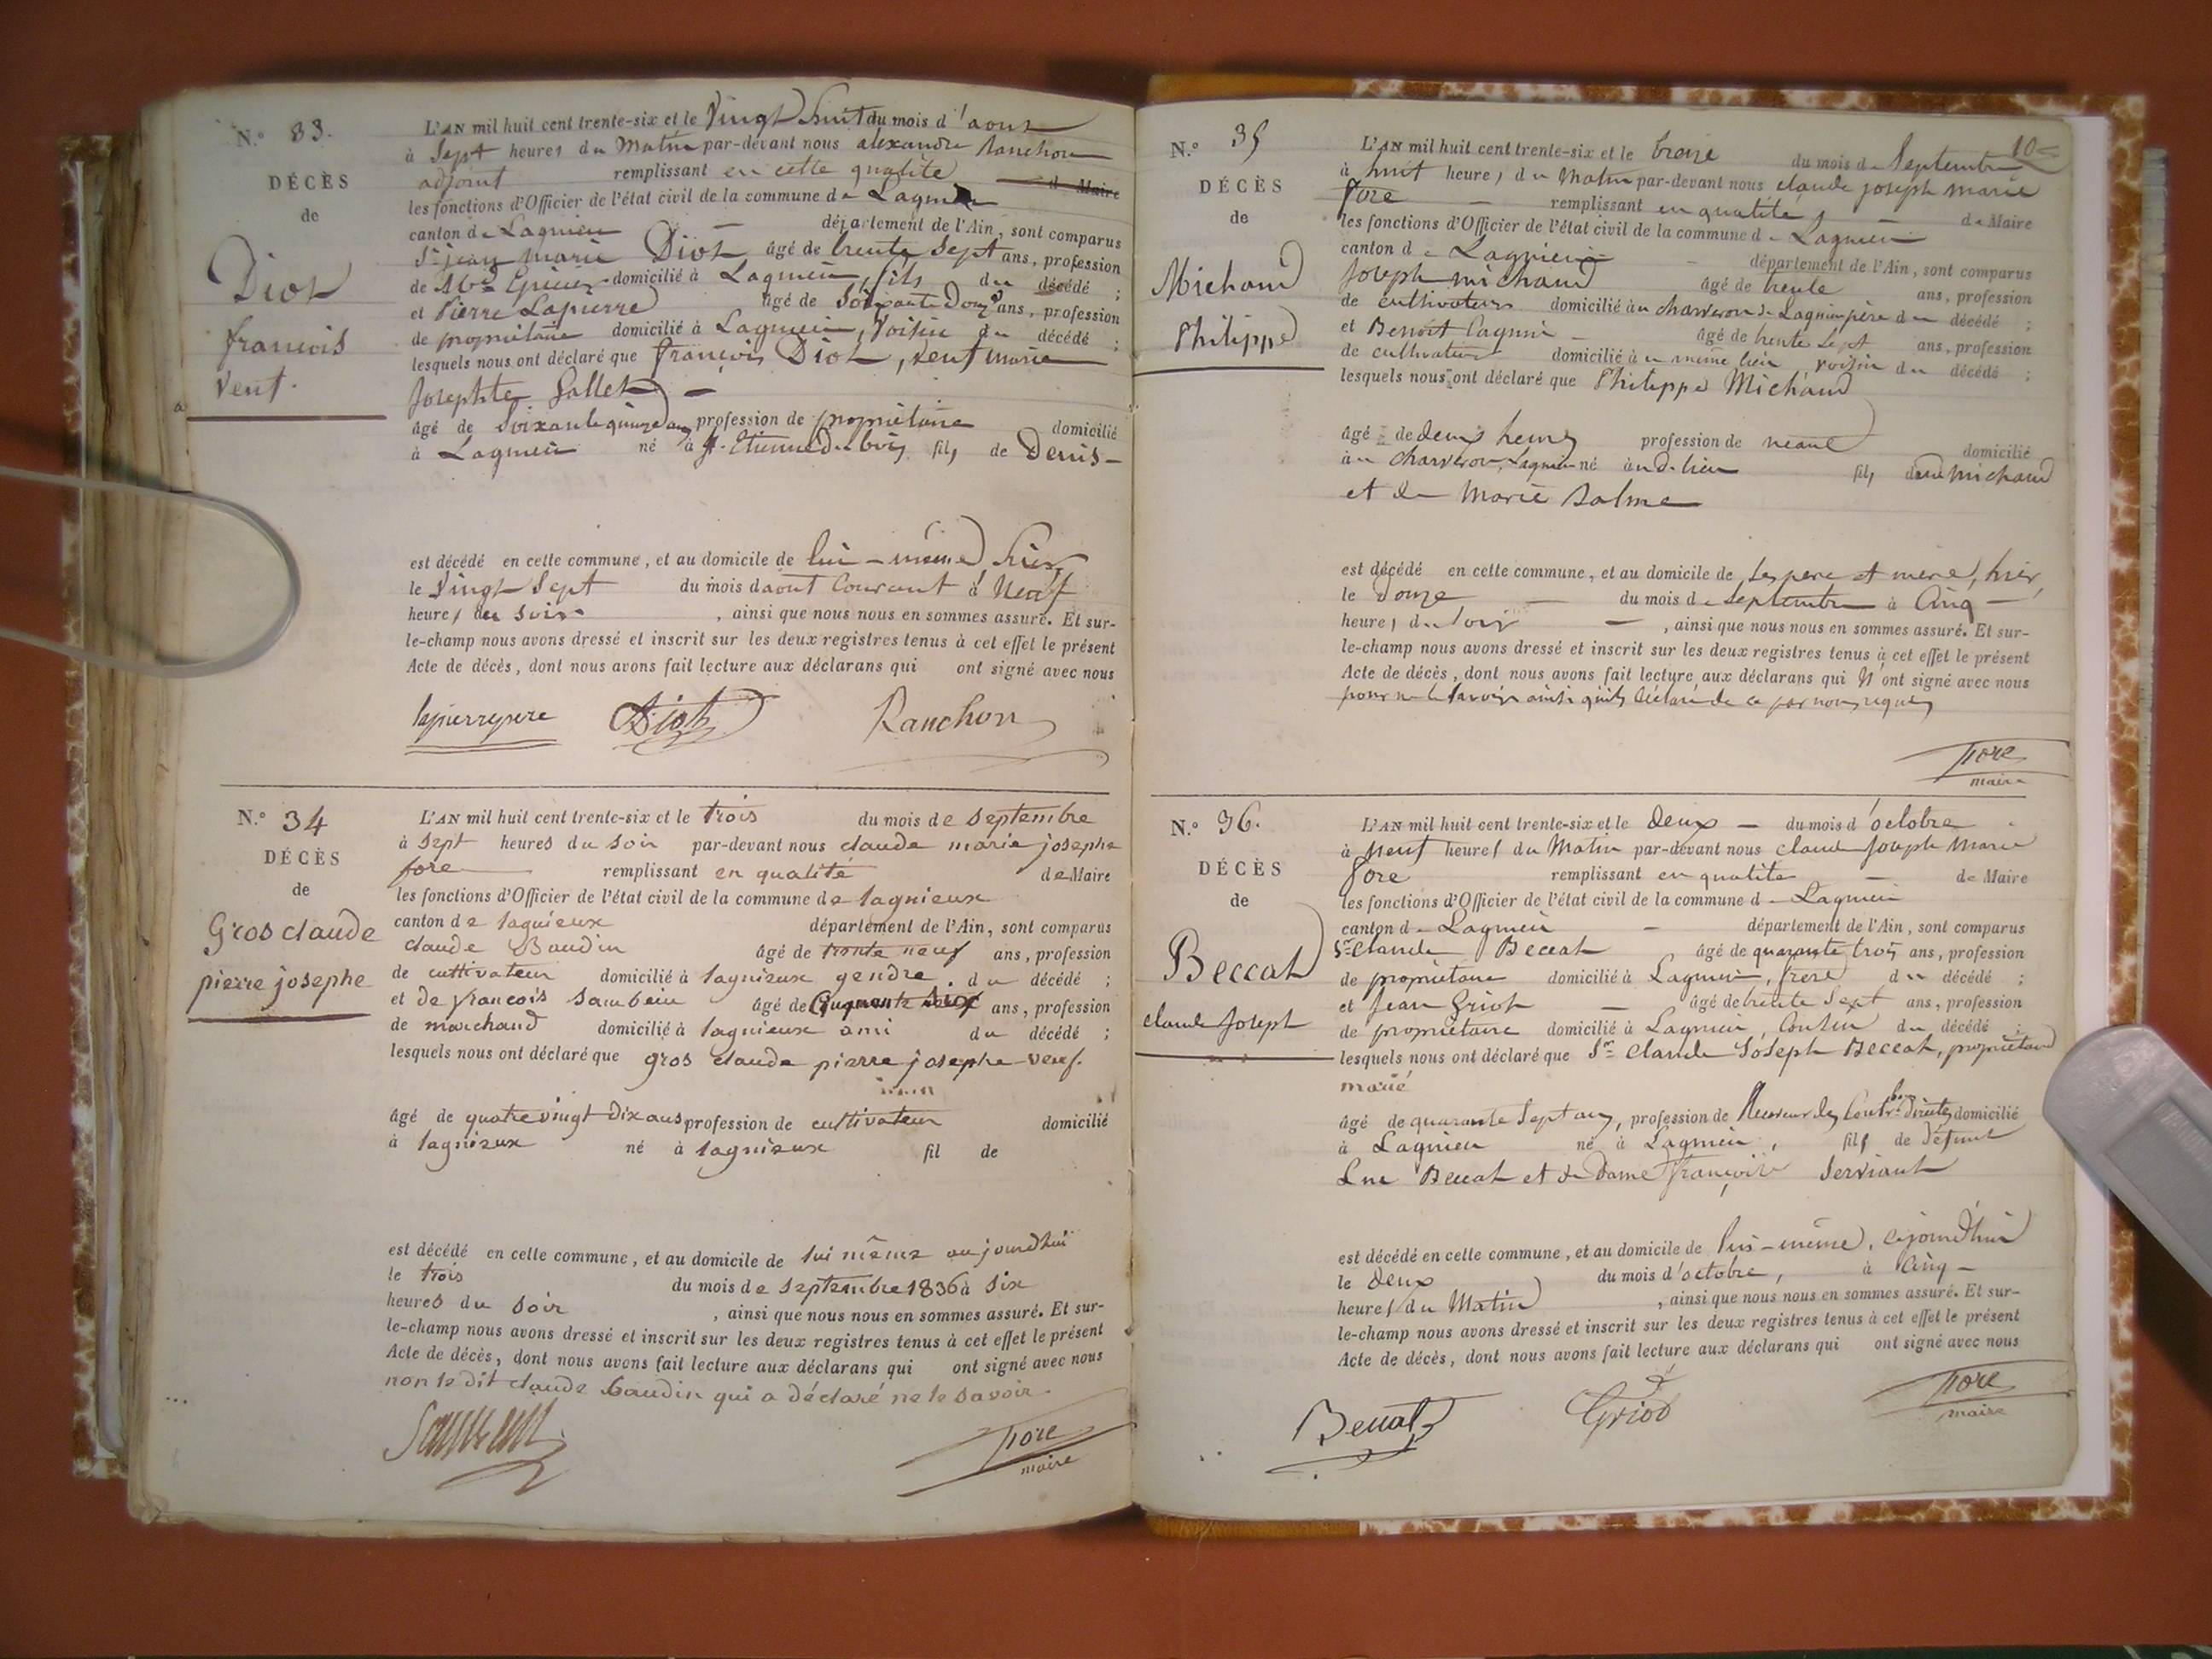 N.° 33.
DÉCÈS
de
Diot
francois
veuf.
L'AN mil huit cent trente-six et le Vingt huit du mois d'aout
à Sept heures du Matin par-devant nous alexandre Ranchon
adjoint remplissant en cette qualité d Maire
les fonctions d'Officier de l'état civil de la commune de Lagnieu
canton de Lagnieu — département de l'Ain, sont comparus
Sr jean marie Diot âgé de trente Sept ans, profession
de Md Epicier domicilié à Lagnieu, fils du décédé ;
et Pierre Lapierre âgé de Soixante Douze ans, profession
de propriétaire domicilié à Lagnieu, Voisin du décédé ;
lesquels nous ont déclaré que françois Diot, veuf marie
Josephte Gallet —
âgé de Soixante quinze ans profession de propriétaire domicilié
à Lagnieu né à St. Etienne Du bois fils de Denis —
est décédé en cette commune, et au domicile de lui-même hier
le Vingt Sept du mois d'aout Courant à Neuf
heures du Soir , ainsi que nous nous en sommes assuré. Et sur-
le-champ nous avons dressé et inscrit sur les deux registres tenus à cet effet le présent
Acte de décès, dont nous avons fait lecture aux déclarans qui ont signé avec nous
lapierrepere Diot Ranchon
N.° 34
DÉCÈS
de
Gros claude
pierre josephe
L'AN mil huit cent trente-six et le trois du mois de septembre
à sept heures du soir par-devant nous claude marie josephe
fore remplissant en qualité de Maire
les fonctions d'Officier de l'état civil de la commune de lagnieux
canton de lagnieux département de l'Ain, sont comparus
claude Baudin âgé de trente neuf ans, profession
de cultivateur domicilié à lagnieux gendre du décédé ;
et de francois Sambein âgé de Cinquante ans, profession
de marchand domicilié à lagnieux ami du décédé ;
lesquels nous ont déclaré que gros claude pierre josephe veuf.
âgé de quatre vingt dix ans profession de cultivateur domicilié
à lagnieux né à lagnieux fil de
est décédé en cette commune, et au domicile de lui même aujourdhui
le trois du mois de septembre 1836 à six
heures du soir , ainsi que nous nous en sommes assuré. Et sur-
le-champ nous avons dressé et inscrit sur les deux registres tenus à cet effet le présent
Acte de décès, dont nous avons fait lecture aux déclarans qui ont signé avec nous
non le dit claude baudin qui a déclaré ne le savoir.
fore
maire
10
N.° 35
DÉCÈS
de
Michaud
Philippe
L'AN mil huit cent trente-six et le treize du mois de Septembre
à huit heures du Matin par-devant nous claude joseph marie
fore — remplissant en qualité — de Maire
les fonctions d'Officier de l'état civil de la commune de Lagnieu
canton de Lagnieu — département de l'Ain, sont comparus
Joseph michaud âgé de trente ans, profession
de cultivateur domicilié au charveron de Lagnieu père du décédé ;
et Benoit Cagnin — âgé de trente sept ans, profession
de cultivateur domicilié à u même lieu voisin du décédé ;
lesquels nous ont déclaré que Philippe Michaud
âgé de deux heures profession de néant domicilié
à u charveron, Lagnieu né à u d. lieu fils dudit michaud
et de Marie Balme
est décédé en cette commune, et au domicile de ses pere et mere, hier
le Douze — du mois de Septembre à Cinq —
heures du soir — , ainsi que nous nous en sommes assuré. Et sur-
le-champ nous avons dressé et inscrit sur les deux registres tenus à cet effet le présent
Acte de décès, dont nous avons fait lecture aux déclarans qui N'ont signé avec nous
pour ne le savoir ainsi qu'ils déclaré de ce par nous requis
fore
maire
N.° 36.
DÉCÈS
de
Beccat
claude Joseph
L'AN mil huit cent trente-six et le Deux — du mois d'octobre
à Neuf heures du Matin par-devant nous claude Joseph Marie
fore remplissant en qualité — de Maire
les fonctions d'Officier de l'état civil de la commune de Lagnieu
canton de Lagnieu — département de l'Ain, sont comparus
Sr Claude Beccat âgé de quarante trois ans, profession
de propriétaire domicilié à Lagnieu, frere du décédé ;
et Jean Griot — âgé de trente Sept ans, profession
de propriétaire domicilié à Lagnieu, Cousin du décédé ;
lesquels nous ont déclaré que Sr Claude Joseph Beccat, propriétaire
marié
âgé de quarante Sept ans, profession de Receveur des Contr.bons Directes domicilié
à Lagnieu né à Lagnieu, fils de défunt
Luc Beccat et de Dame françoise Serviant
est décédé en cette commune, et au domicile de lui-même, cejourd'hui
le Deux du mois d'octobre, à Cinq —
heures du Matin , ainsi que nous nous en sommes assuré. Et sur-
le-champ nous avons dressé et inscrit sur les deux registres tenus à cet effet le présent
Acte de décès, dont nous avons fait lecture aux déclarans qui ont signé avec nous
Beccat Griot fore
maire